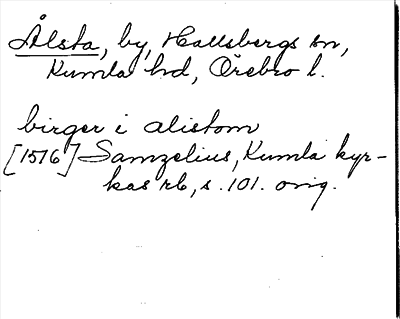 Ålsta, by, Hallsbergs sn,
Kumla hd, Örebro l.
birger i alistom
[1576] Samzelius, Kumla kyr-
kas rb, s. 101. orig.